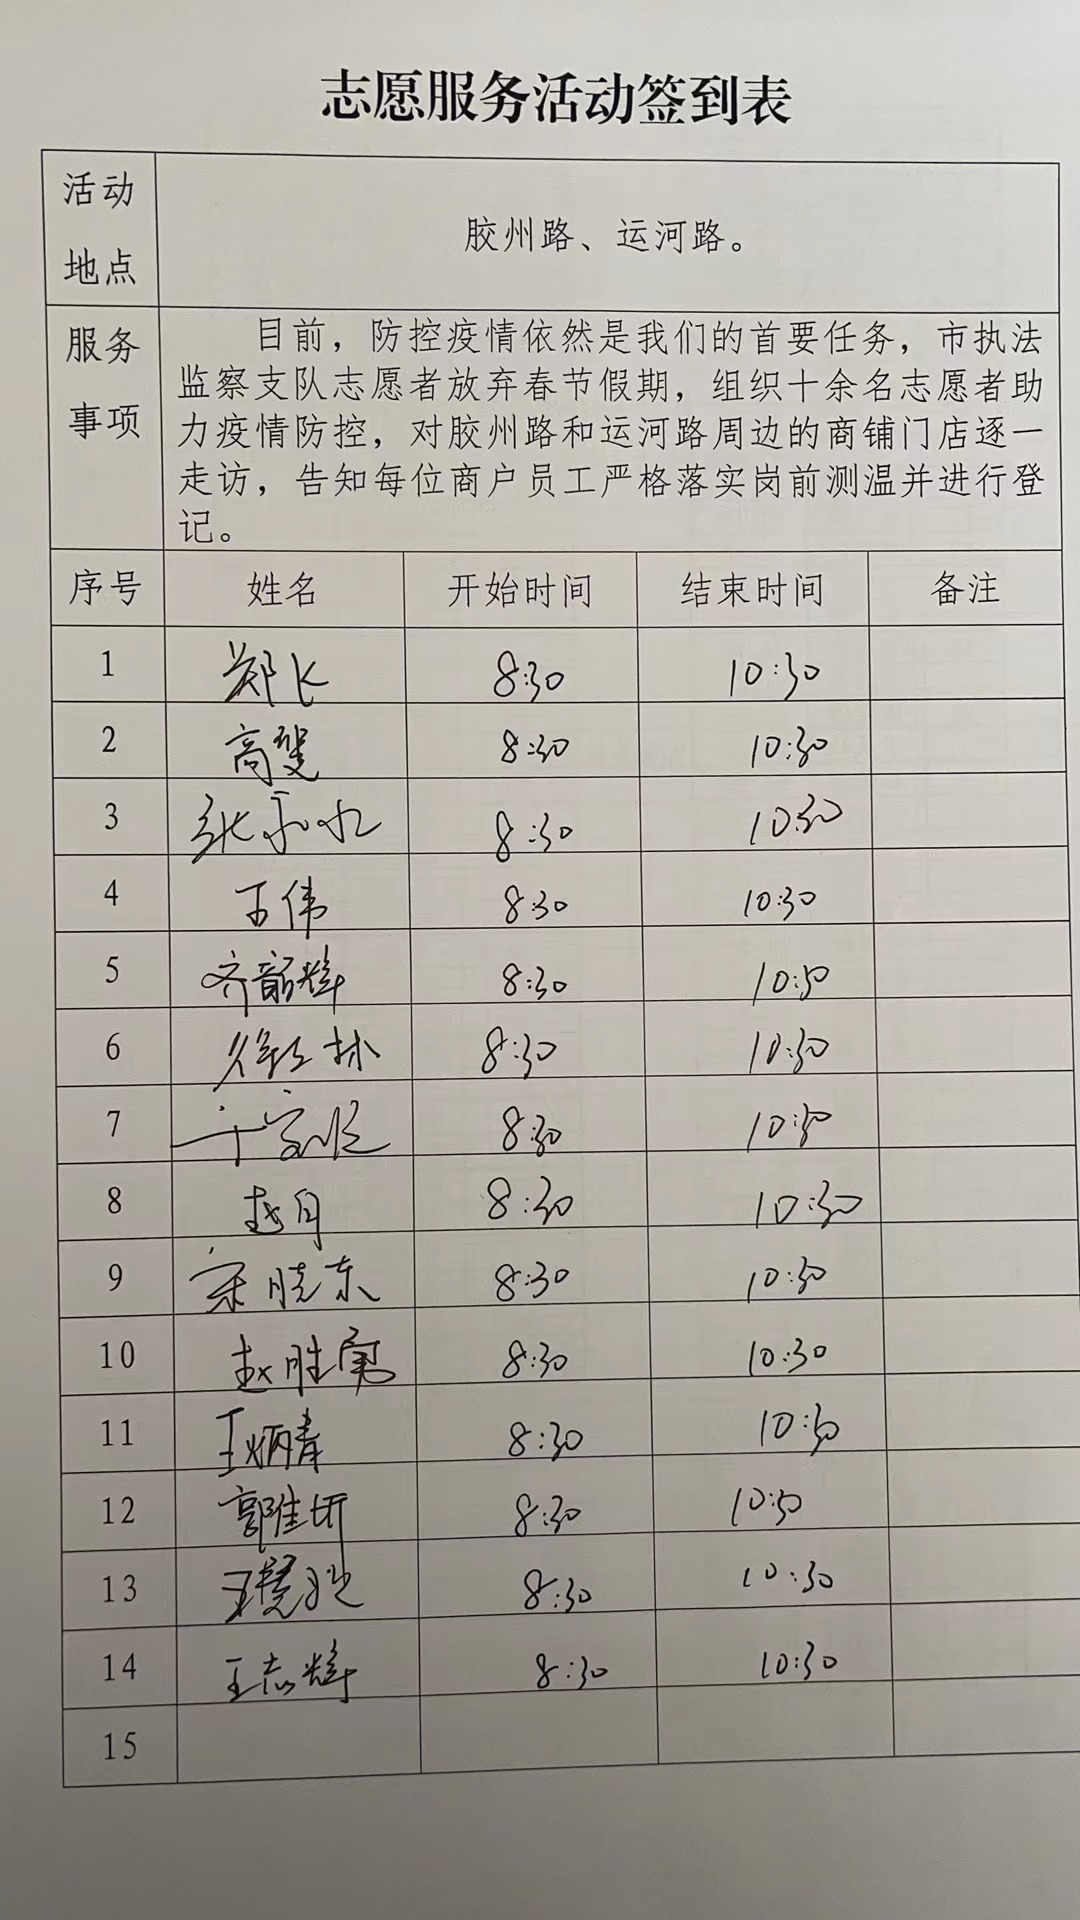 志愿服务活动签到表
活动地点
胶州路、运河路。
服务事项
目前，防控疫情依然是我们的首要任务，市执法
监察支队志愿者放弃春节假期，组织十余名志愿者助
力疫情防控，对胶州路和运河路周边的商铺门店逐一
走访，告知每位商户员工严格落实岗前测温并进行登
记。
序号 姓名 开始时间 结束时间 备注
1 郑飞 8:30 10:30
2 高 8:30 10:30
3 张 8:30 10:30
4 王伟 8:30 10:30
5 齐韶辉 8:30 10:30
6 徐 林 8:30 10:30
7 8:30 10:30
8 赵月 8:30 10:30
9 宋晓东 8:30 10:30
10 赵胜勇 8:30 10:30
11 王炳青 8:30 10:30
12 郭佳圻 8:30 10:30
13 王 8:30 10:30
14 王志辉 8:30 10:30
15